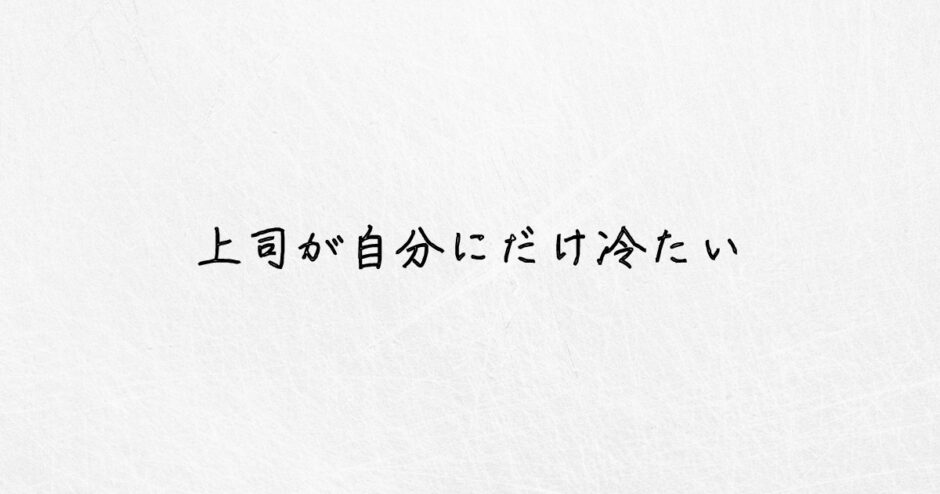 上司が自分にだけ冷たい